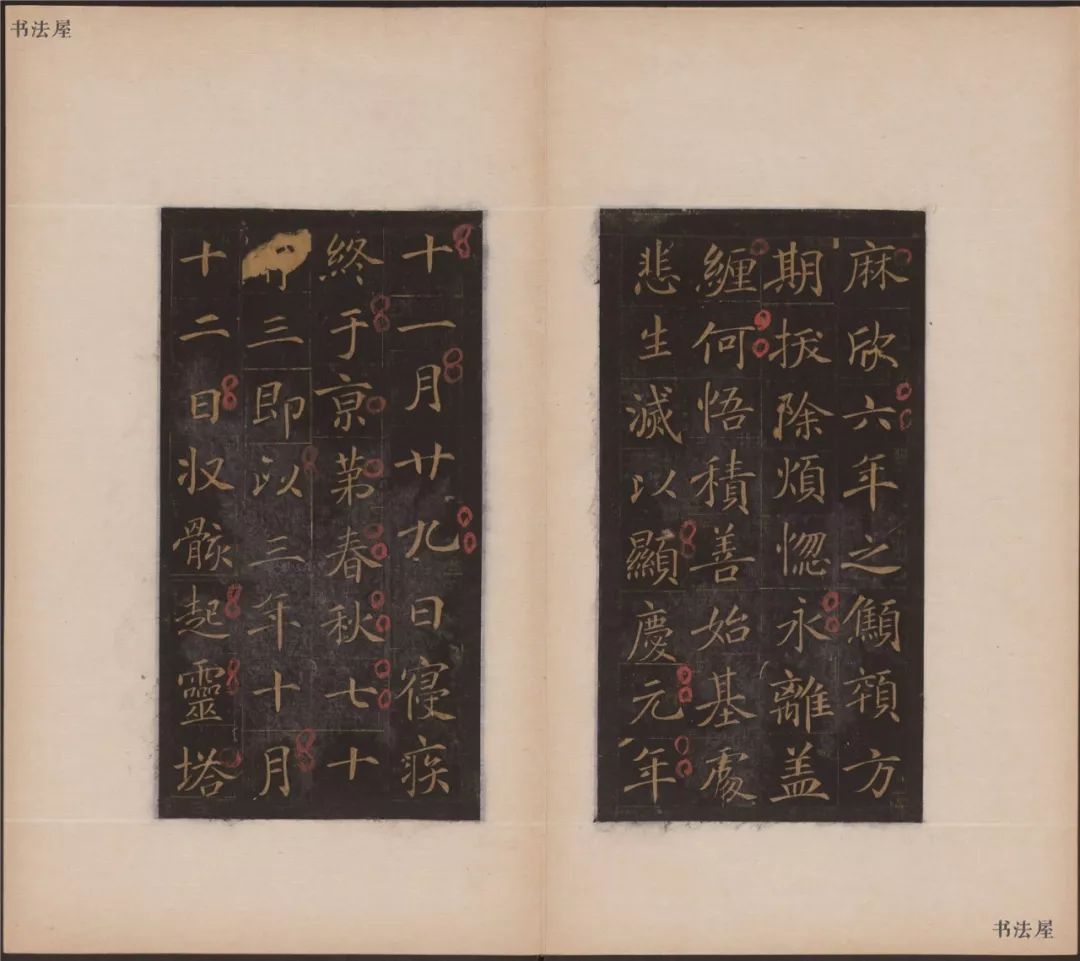 书法屋
麻欣六年之顦顇方
期拔除煩惚永離盖
纏何悟積善始基處
悲生滅以顯慶元年
十一月廿九日寑疾
終于京第春秋七十
三即以三年十月
十二日収骸起靈塔
书法屋